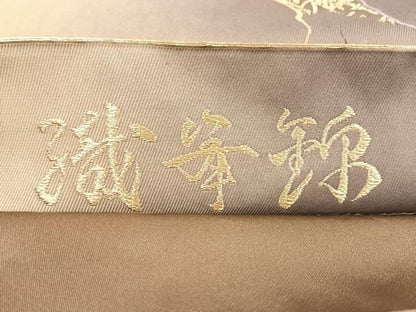 織峯錦